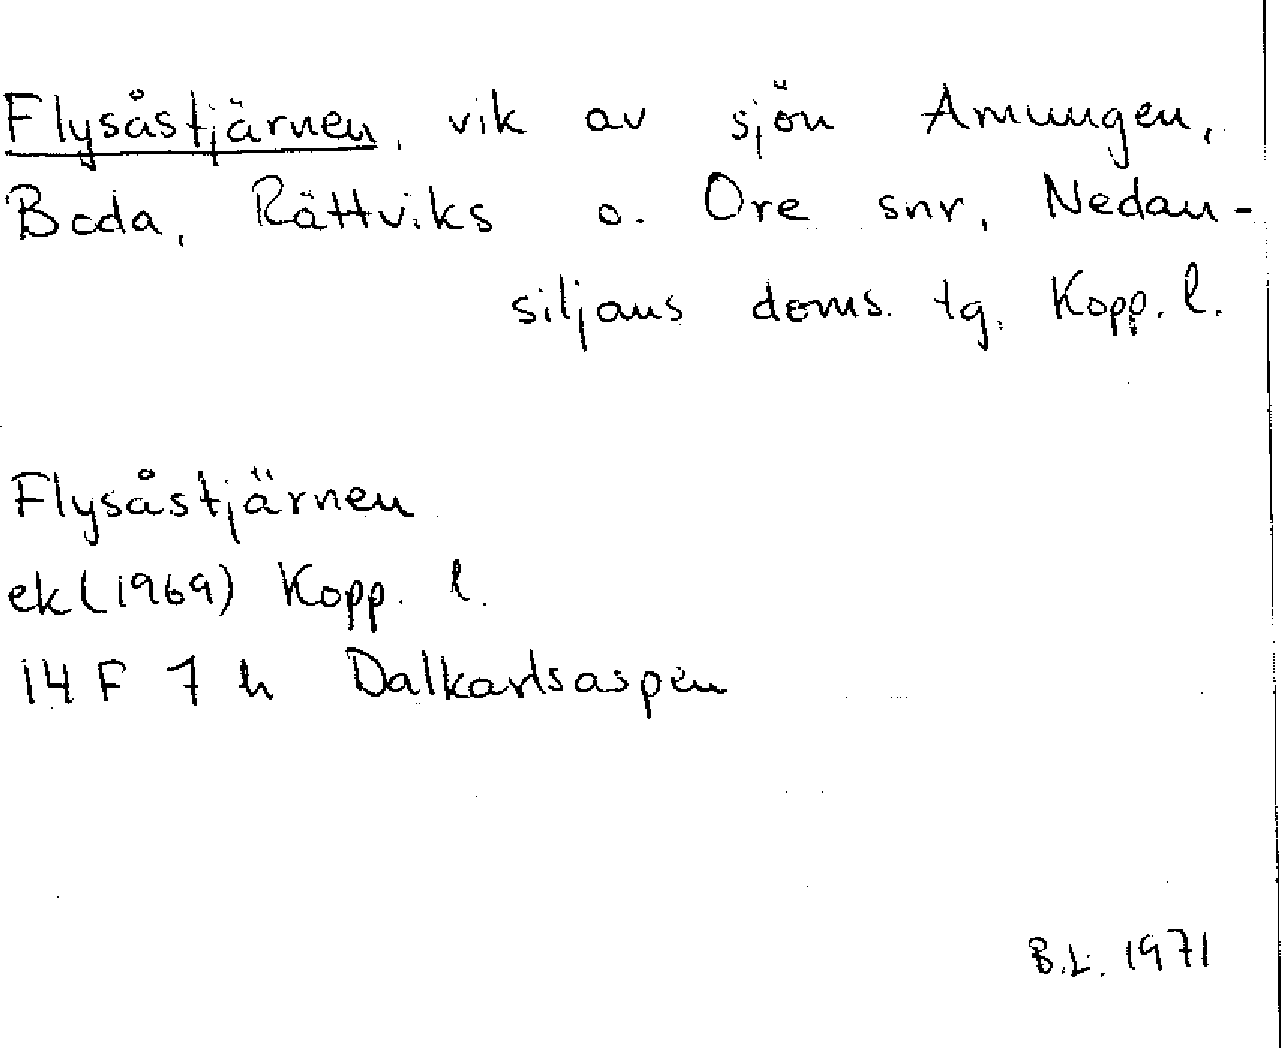 Flysåstjärnen, vik av sjön Amungen,
Boda, Rättviks o. Ore snr, Nedan-
siljans doms. tg. Kopp. l.
Flysåstjärnen
ek (1969) Kopp. l.
14 F 7 h Dalkarlsaspen
B.L. 1971